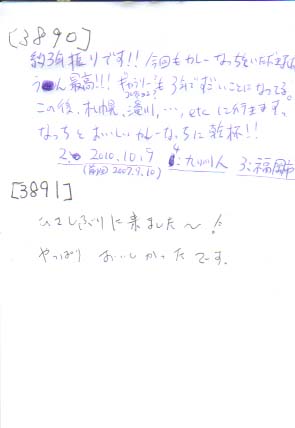 [3890]
約3年振りです!!今回もカレーなっちをいただきまし
う〜ん最高!!!ギャラリーも3年ですごいことになってる。
この後、札幌、滝川、…,etc に行きます。
なっちとおいしいカレーなっちに乾杯!!
2: 2010.10.9 4:九州人 3:福岡市
(前回2007.9.10)
[3891]
ひさしぶりに来ました〜!
やっぱり おいしかったです。